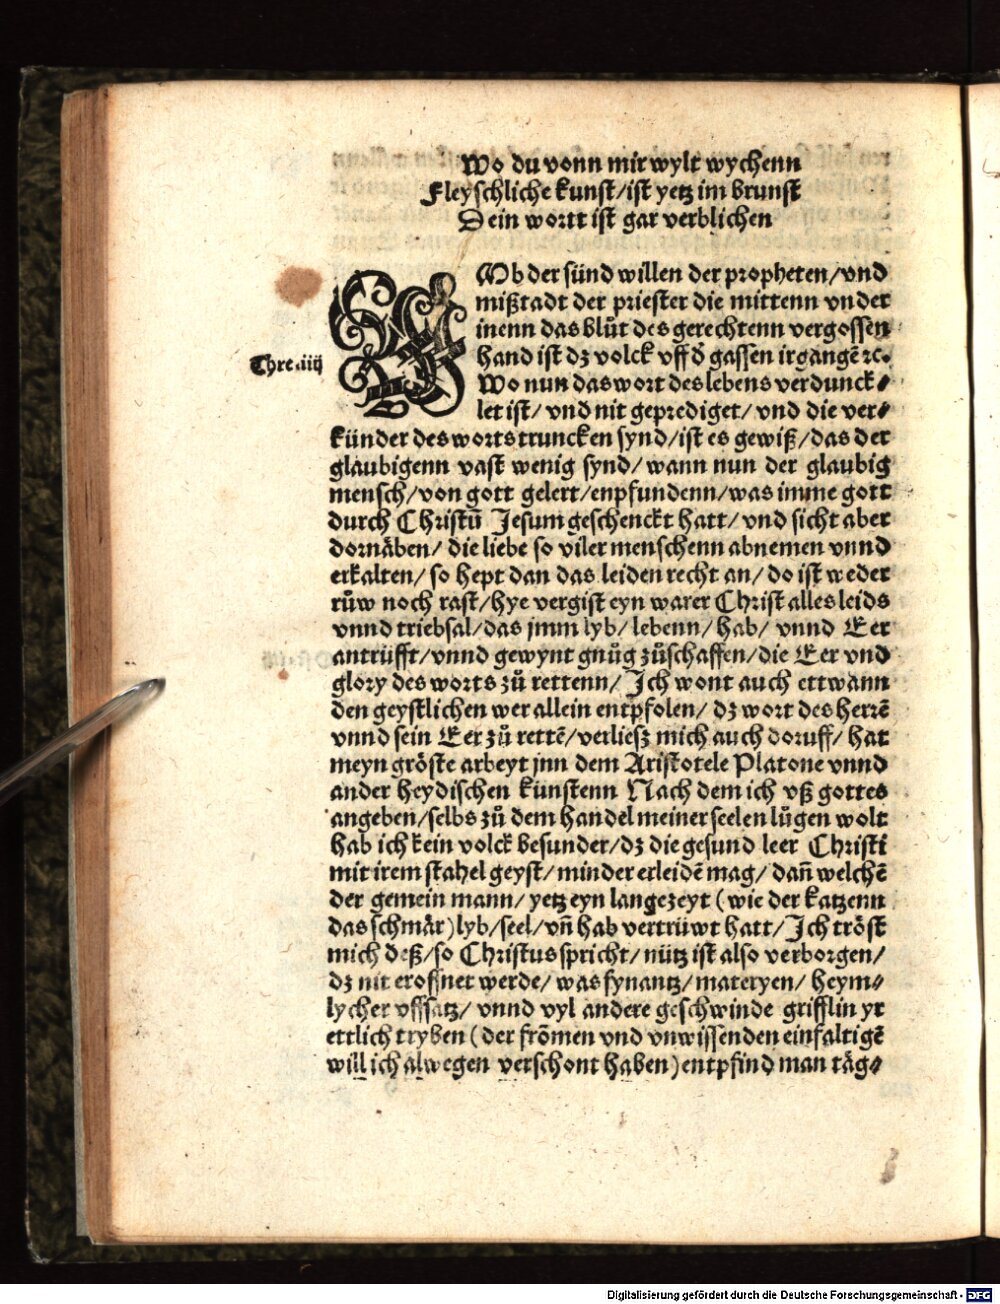 Wo du vonn mir wylt wychenn
Fleyschliche kunst/ist yetz im brunst
Dein wortt ist gar verblichen
Vmb der sünd willen der propheten/vnd
mißtadt der priester die mittenn vnder
inenn das blůt des gerechtenn vergossen
hand ist dz volck vff d̕ gassen irgangē ꝛc.
Thre.iiij
Wo nun das wort des lebens verdunck⸗
let ist/ vnd nit geprediget/ vnd die ver⸗
künder des worts truncken synd/ist es gewiß/das der
glaubigenn vast wenig synd/wann nun der glaubig
mensch/von gott gelert/enpfundenn/was imme gott
durch Christū Jesum geschenckt hatt/ vnd sicht aber
dornåben/ die liebe so viler menschenn abnemen vnnd
erkalten/ so hept dan das leiden recht an/ do ist weder
růw noch rast/hye vergist eyn warer Christ alles leids
vnnd triebsal/das jmm lyb/ lebenn/ hab/ vnnd Eer
antrüfft/vnnd gewynt gnůg zůschaffen/die Eer vnd
glory des worts zů rettenn/ Jch wont auch ettwann
den geystlichen wer allein entpfolen/ dz wort des herrē
vnnd sein Eer zů rettē/verliesz mich auch doruff/ hat
meyn gröste arbeyt jnn dem Aristotele Platone vnnd
ander heydischen künstenn Nach dem ich vß gottes
angeben/selbs zů dem handel meiner seelen lůgen wolt
hab ich kein volck besunder/dz die gesund leer Christi
mit irem stahel geyst/ minder erleidē mag/ dañ welchē
der gemein mann/ yetz eyn lange zeyt (wie der katzenn
das schmår) lyb/seel/vñ hab vertrüwt hatt/Jch tröst
mich deß/so Christus spricht/ nütz ist also verborgen/
dz nit eroffnet werde/ was fynantz/ materyen/ heym⸗
lycher vffsatz/ vnnd vyl andere geschwinde grifflin yr
ettlich tryben (der frōmen vnd vnwissenden einfaltigē
will ich alwegen verschont haben) entpfind man tåg⸗
Digitalisierung gefördert durch die Deutsche Forschungsgemeinschaft - DFG